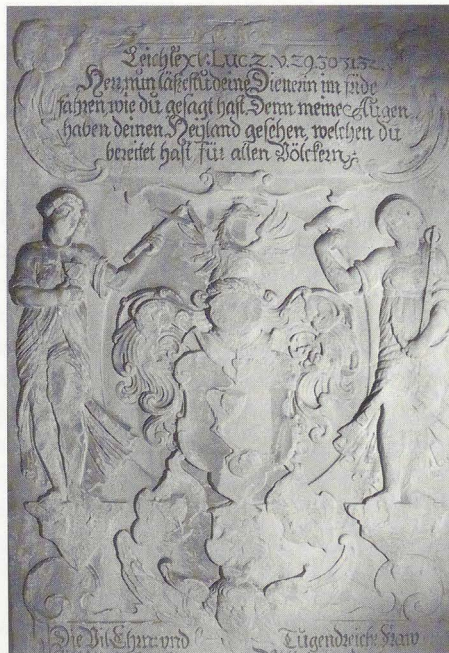 Leichtext: Luc. 2. V. 29. 30. 31. 32.
Herr, nun läsestu deine Dienerin im fride
fahren, wie du gesagt hast. Denn meine Augen
haben deinen Heyland gesehen, welchen du
bereitet hast für allen Völckern.
Die Vil Ehrn: vnd
Tugendreich: Fraw